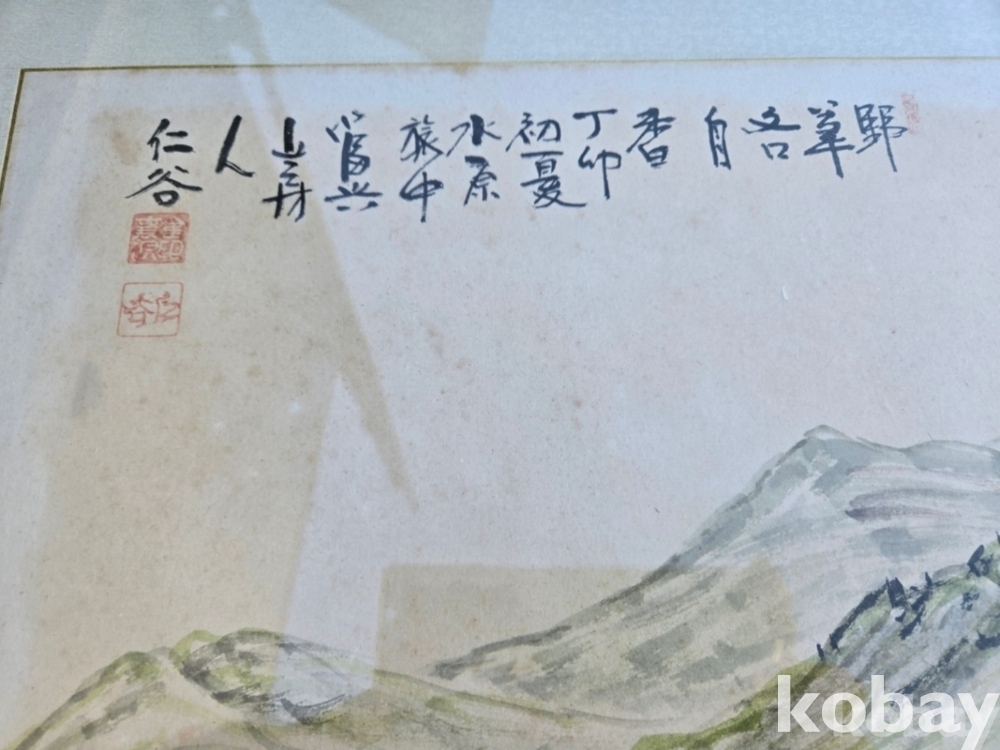 野
草
各
自
香
丁卯
初夏
水原
旅中
人
仁谷
kobay